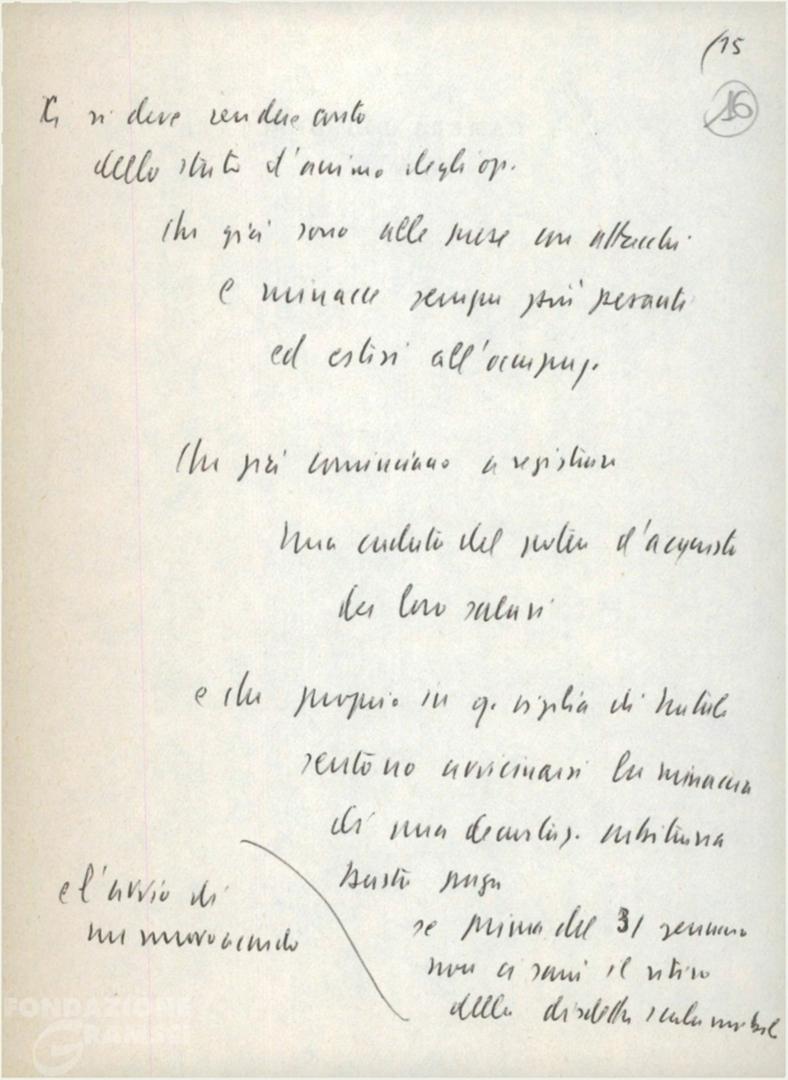 (15
16
Ci si deve rendere conto
dello stato d'animo degli op.
che già sono alle prese con attacchi
e minacce sempre più pesanti
ed estesi all'occupaz.
che già cominciano a registrare
una caduta del potere d'acquisto
dei loro salari
e che proprio in q. vigilia di Natale
sentono avvicinarsi la minaccia
di una decurtaz. arbitraria
busta paga
se prima del 31 gennaio
non ci sarà il ritiro
della disdetta scala mobile
e l'avvio di
un nuovo accordo
FONDAZIONE
GRAMSCI